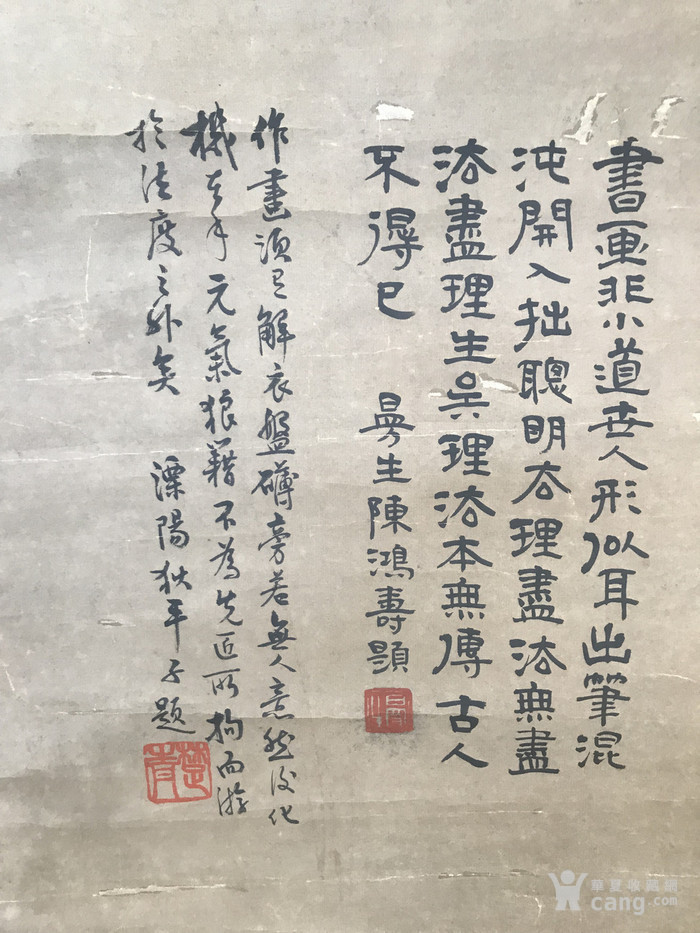 書画非小道世人形似耳出筆混
沌開入拙聰明去理盡法無盡
法盡理生矣理法本無傳古人
不得已
曼生陳鴻壽題
作畫須有解衣盤礴旁若無人意然後化
機在手元氣狼籍不為先匠所拘而游
於法度之外矣
溧陽狄平子題
華夏收藏網
cang.com